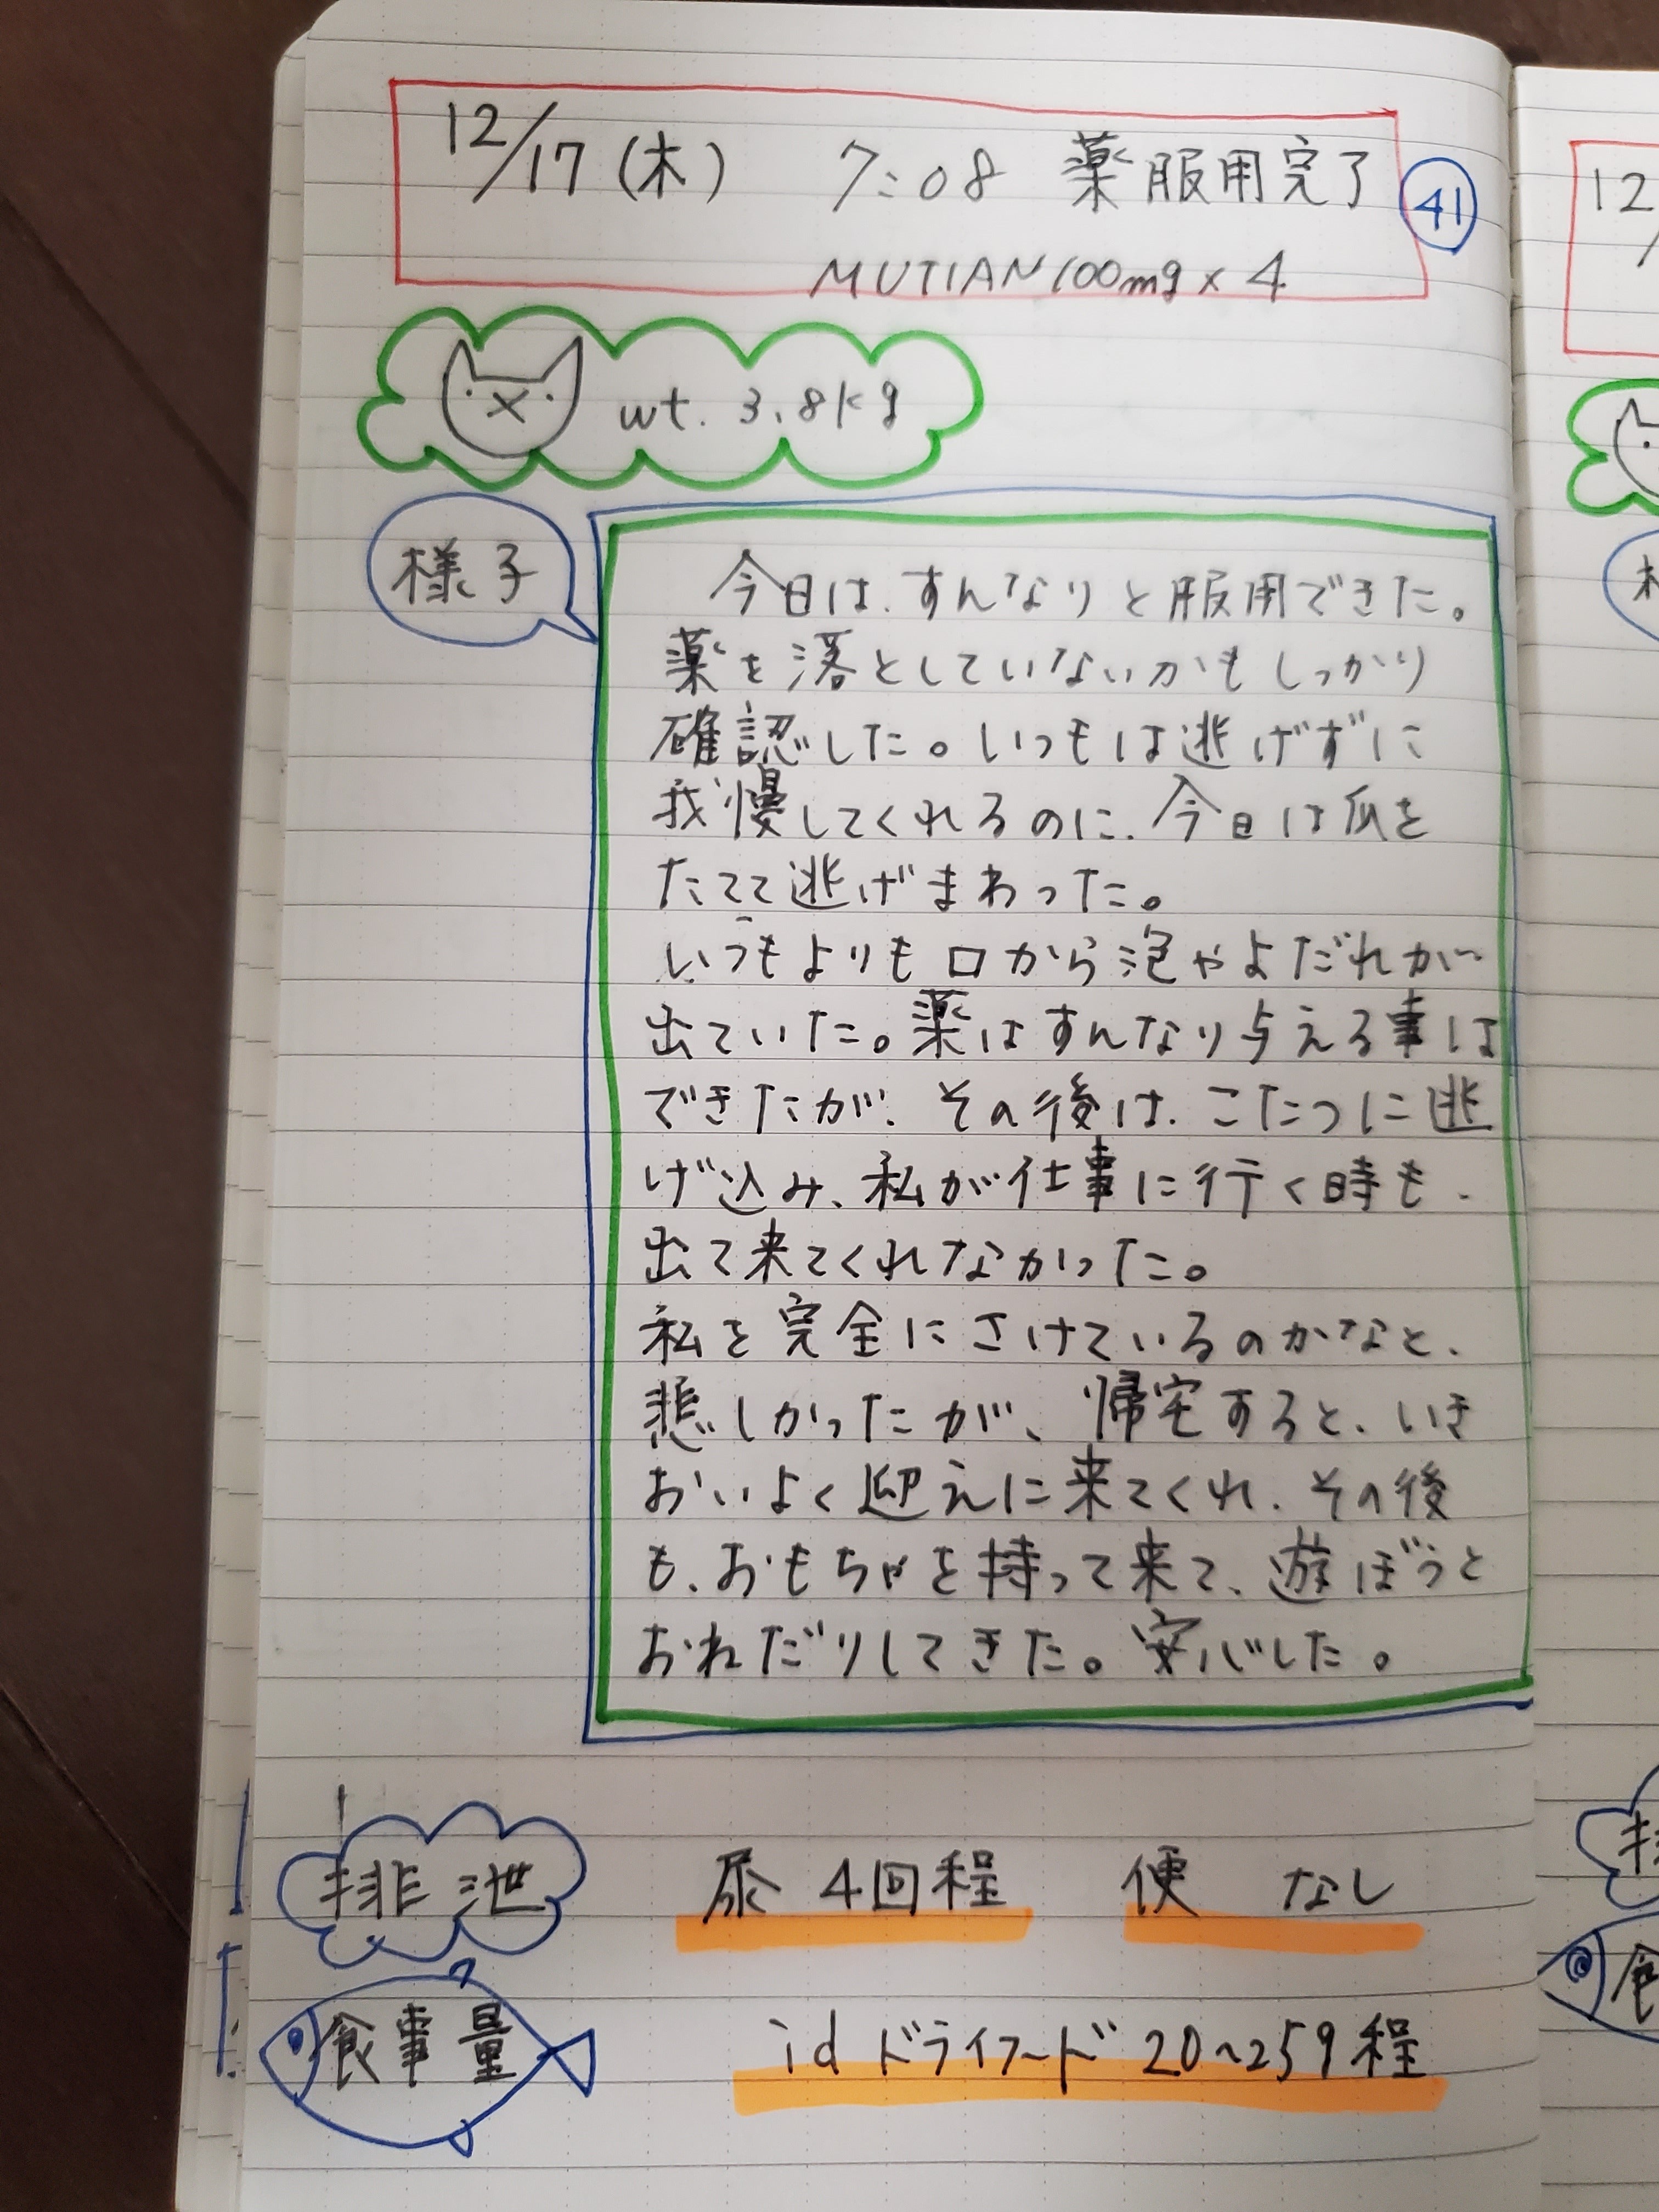 12/17(木) 7:08 薬服用完了 41
MUTIAN100mg×4
wt. 3.8kg
様子
今日は、すんなりと服用できた。
薬を落としていないかもしっかり
確認した。いつもは逃げずに
我慢してくれるのに、今日は爪を
たてて逃げまわった。
いつもよりも口から泡やよだれが
出ていた。薬はすんなり与える事は
できたが、その後は、こたつに逃
げ込み、私が仕事に行く時も、
出て来てくれなかった。
私を完全にさけているのかなと、
悲しかったが、帰宅すると、いき
おいよく迎えに来てくれ、その後
も、おもちゃを持って来て、遊ぼうと
おねだりしてきた。安心した。
排泄 尿 4回程 便 なし
食事量 id ドライフード 20~25g程
12